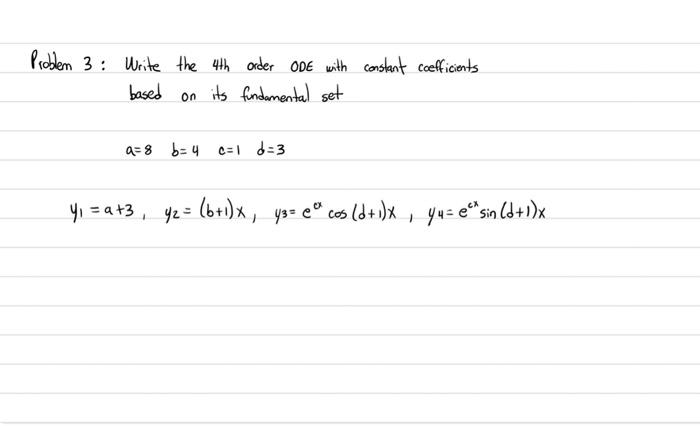 Problem 3 : Write the 4th order ODE with constant coefficients
based on its fundamental set
a=8 b=4 c=1 d=3
y₁ = a+3, y₂ = (b+1)x, y₃ = eᶜˣ cos (d+1)x, y₄ = eᶜˣ sin (d+1)x